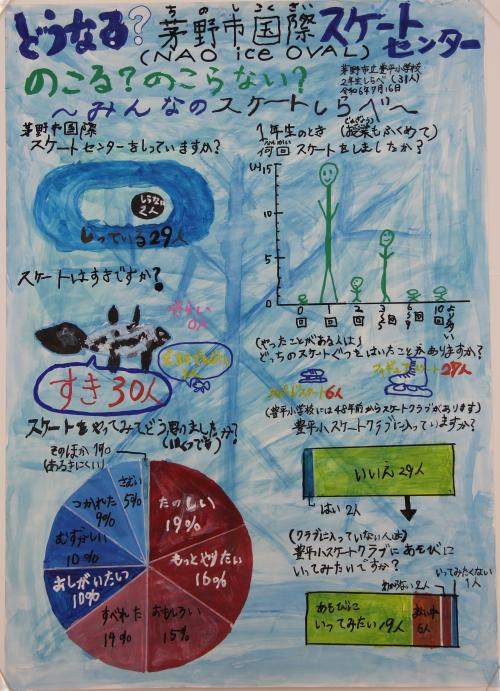 どうなる?茅野市国際スケートセンター
ちのしこくさい
(NAO ice OVAL)
のこる?のこらない?
~みんなのスケートしらべ~
茅野市立豊平小学校
2年生しらべ (31人)
令和6年7月16日
茅野市国際
スケートセンターをしっていますか?
しらない
2人
しっている29人
1年生のとき (授業もふくめて)
何回スケートをしましたか?
(人)
15
10
5
0
0回
1回
2回
10回
スケートはすきですか?
きらい
0人
すき30人
(やったことがある人は)
どっちのスケートぐつをはいたことがありますか?
スピードスケート6人
フィギュアスケート27人
(豊平小学校には48年前からスケートクラブがあります)
豊平小スケートクラブに入っていますか?
いいえ29人
はい2人
スケートをやってみてどう思いましたか?
(いくつでも)
そのほか1%
(あるきにくい)
さむい
5%
つかれた
9%
むずかしい
10%
おしがいたい
10%
すべれた
14%
おもしろい
15%
もっとやりたい
16%
たのしい
19%
(クラブに入っていない人は)
豊平小スケートクラブにあそびに
いってみたいですか?
わからない2人
いってみたくない
1人
あそびに
いってみたい19人
6人